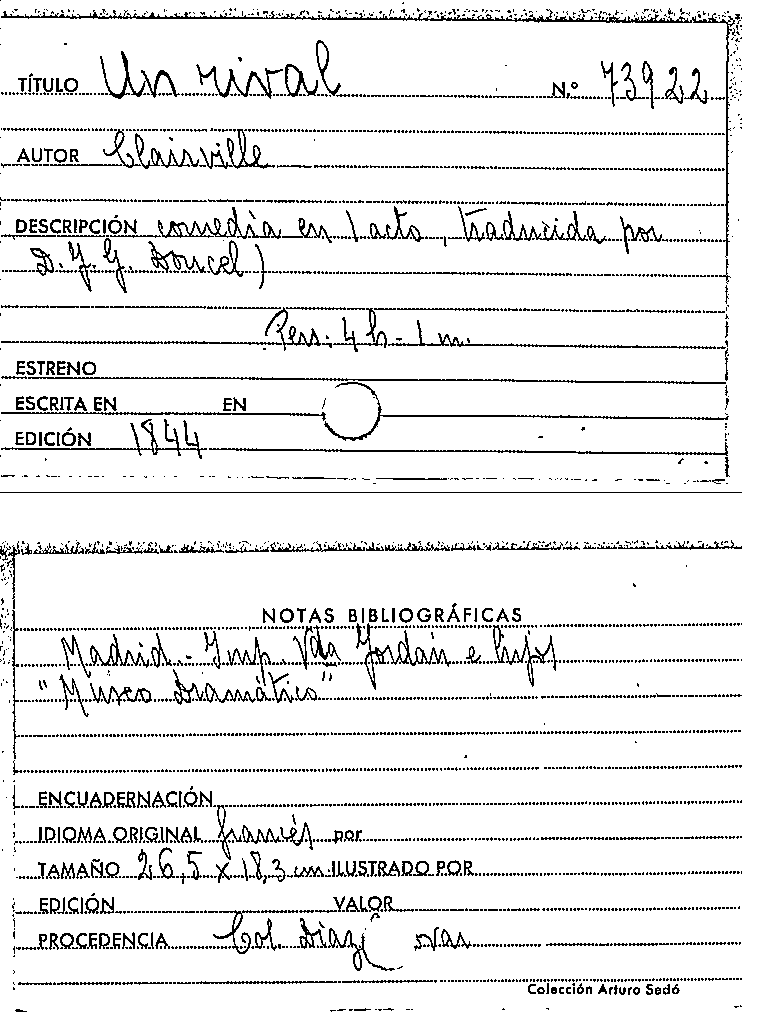 TÍTULO Un rival N.º 73922
AUTOR Clairville
DESCRIPCIÓN comedia en 1 acto, traducida por
D. J. G. Doncel)
Pers: 4 h - 1 m.
ESTRENO
ESCRITA EN EN
EDICIÓN 1844
NOTAS BIBLIOGRÁFICAS
Madrid - Imp. Vda Jordán e hijos
"Museo Dramático"
ENCUADERNACIÓN
IDIOMA ORIGINAL francés por
TAMAÑO 26,5 x 18,3 cm ILUSTRADO POR
EDICIÓN VALOR
PROCEDENCIA Col. Diaz
Colección Arturo Sedó